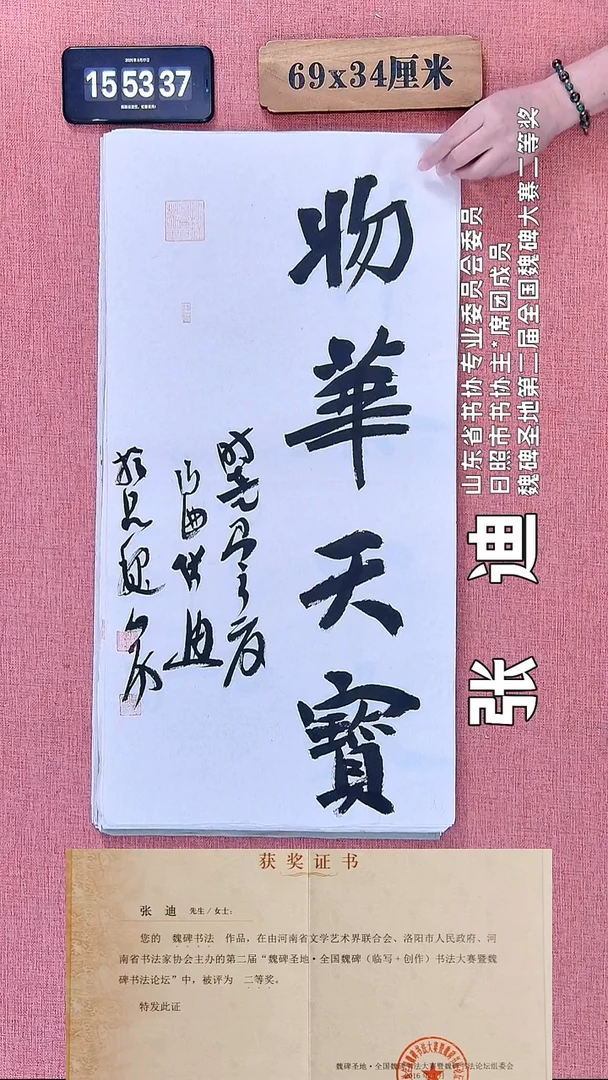 15 53 37
69x34厘米
物華天寶
山东省书协专业委员会委员
日照市书协主*席团成员
魏碑圣地第二届全国魏碑大赛二等奖
张 迪
获奖证书
张 迪 先生/女士:
您的 魏碑书法 作品,在由河南省文学艺术界联合会、洛阳市人民政府、河
南省书法家协会主办的第二届“魏碑圣地·全国魏碑(临写+创作)书法大赛暨魏
碑书法论坛”中,被评为 二等奖。
特发此证
魏碑圣地·全国魏碑书法大赛暨魏碑书法论坛组委会